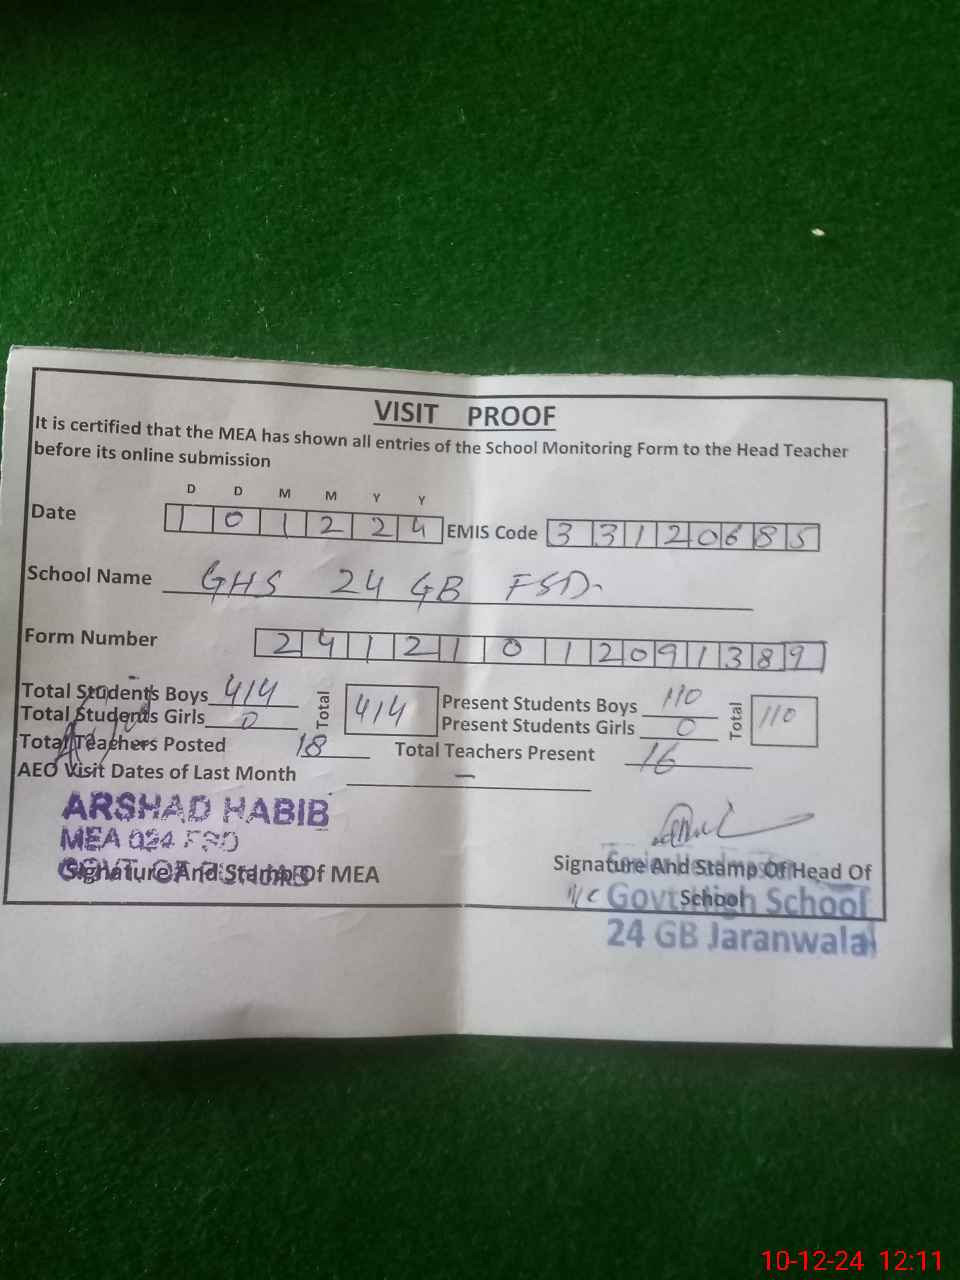 VISIT PROOF
It is certified that the MEA has shown all entries of the School Monitoring Form to the Head Teacher
before its online submission
D D M M Y Y
Date 1 0 1 2 2 4 EMIS Code 3 3 1 2 0 6 8 5
School Name GHS 24 GB FSD.
Form Number 2 4 1 2 1 0 1 2 0 9 1 3 8 9
Total Students Boys 414 Total 414 Present Students Boys 110 Total 110
Total Students Girls 0 Present Students Girls 0
Total Teachers Posted 18 Total Teachers Present 16
AEO Visit Dates of Last Month —
ARSHAD HABIB
MEA 024 FSD
GOVT OF PUNJAB
Signature And Stamp Of MEA
Signature And Stamp Of Head Of
School
I/C Govt. High School
24 GB Jaranwala
10-12-24 12:11